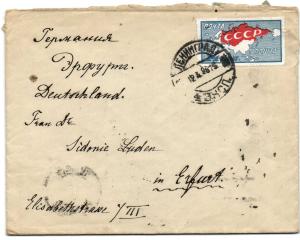 Германия
Эрфурт.
Deutschland.
Frau Dr
Sidonie Luden
in Erfurt.
Elisabethstrasse 1/III
ПОЧТА
СССР
ЛЕНИНГРАД